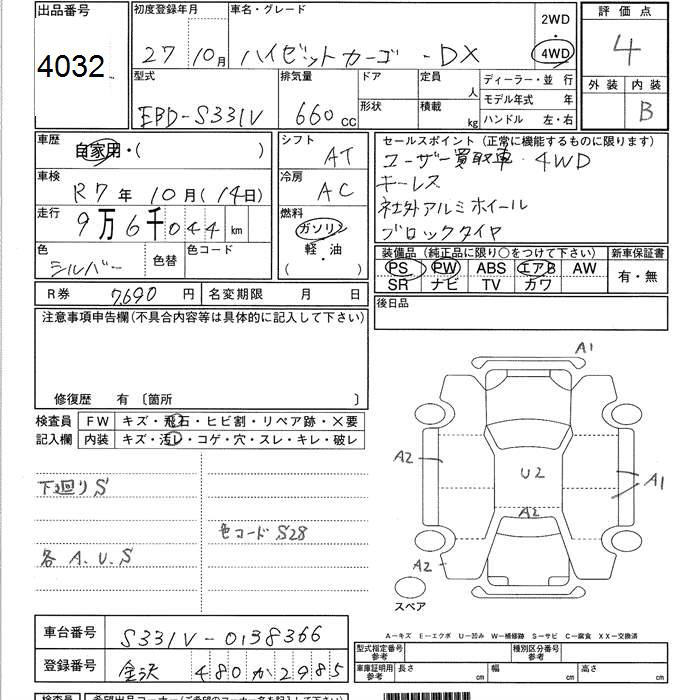 出品番号
4032
初度登録年月
27 10月
車名・グレード
ハイゼットカーゴ - DX
2WD
・
4WD
評価点
4
型式
EBD-S331V
排気量
660 cc
ドア
形状
定員
人
積載
kg
ディーラー・並 行
モデル年式 年
ハンドル 左・右
外装 内装
B
車歴
自家用・( )
車検
R7年10月(14日)
走行
9万6千044km
色
シルバー
色替
色コード
シフト
AT
冷房
AC
燃料
ガソリン
軽・油
( )
セールスポイント (正常に機能するものに限ります)
ユーザー買取車・4WD
キーレス
社外アルミホイール
ブロックタイヤ
装備品 (純正品に限り○をつけて下さい)
PS PW ABS エアB AW
SR ナビ TV カワ
新車保証書
有・無
R券 7,690 円
名変期限 月 日
後日品
注意事項申告欄(不具合内容等は具体的に記入して下さい)
修復歴 有 〔箇所 〕
検査員
記入欄
FW キズ・飛石・ヒビ割・リペア跡・×要
内装 キズ・汚レ・コゲ・穴・スレ・キレ・破レ
下廻りS
色コード S28
各 A.U.S
A1
A2
U2
A1
A2
A2
スペア
A－キズ E－エクボ U－凹み W－補修跡 S－サビ C－腐食 XX－交換済
車台番号 S331V-0138366
登録番号 金沢 480 か 2985
型式指定番号
参考
種別区分番号
参考
車庫証明用
参考
長さ cm
幅 cm
高さ cm
検査員
希望出品コーナー(ご希望のコーナー名を記入して下さい)